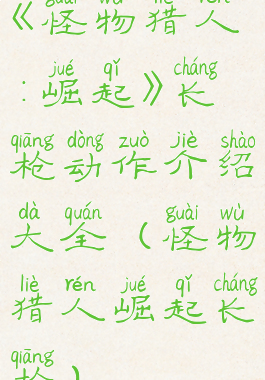 guài wù liè rén
《怪物猎人
jué qǐ cháng
:崛起》长
qiāng dòng zuò jiè shào
枪动作介绍
dà quán guài wù
大全(怪物
liè rén jué qǐ cháng
猎人崛起长
qiāng
枪)